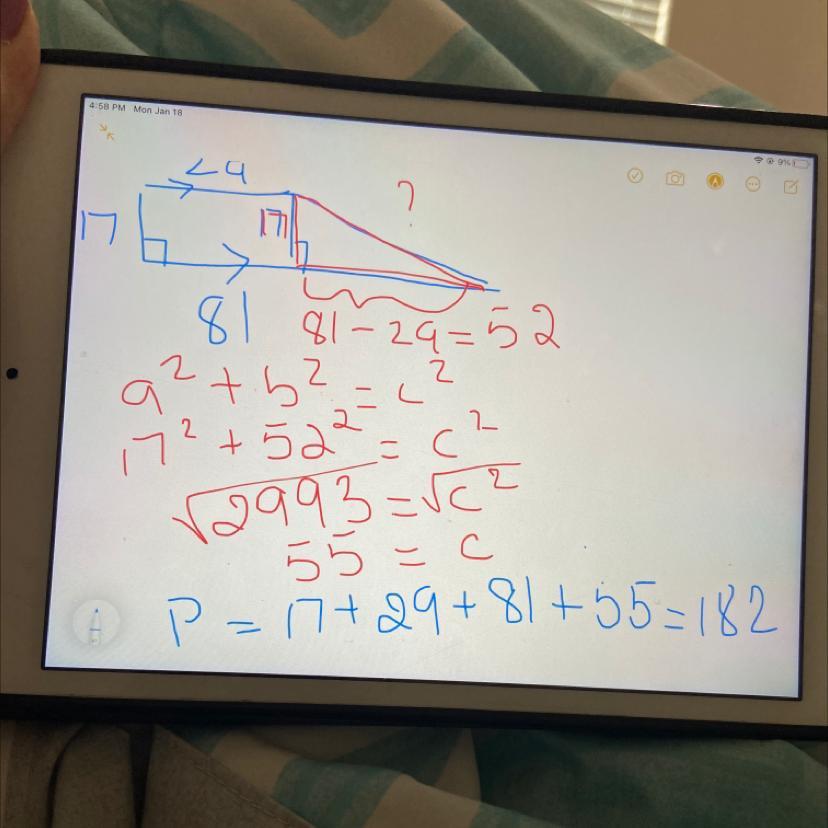 4:58 PM Mon Jan 18
9%
29
17
17
?
81
81-29=52
a²+b²=c²
17²+52²=c²
√2993=√c²
55=c
P=17+29+81+55=182